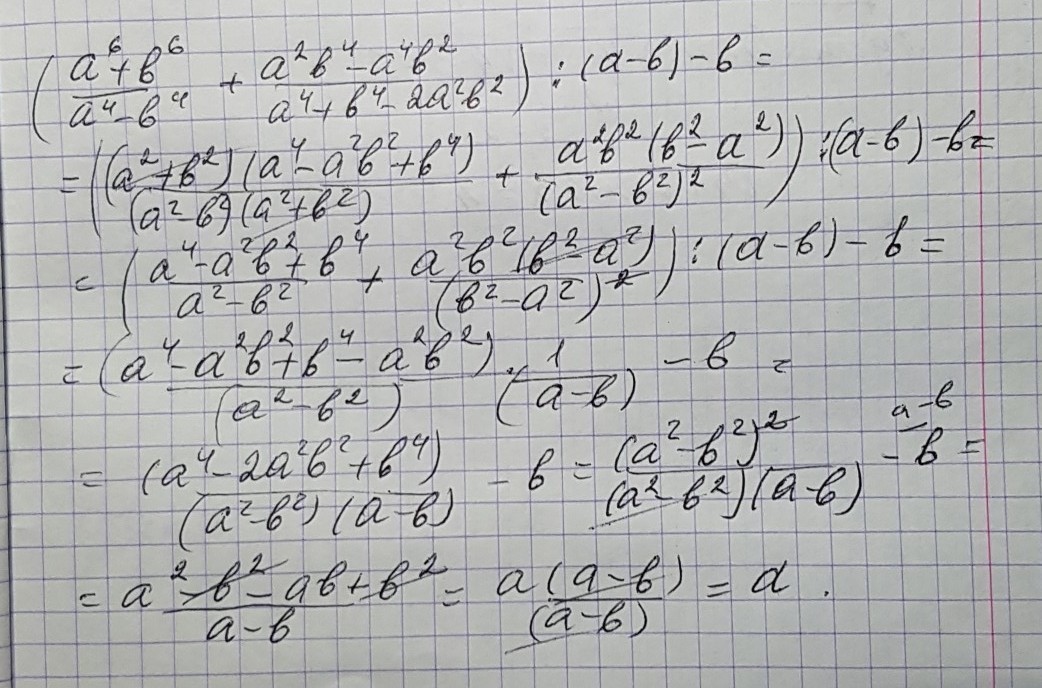 (a⁶+b⁶/a⁴-b⁴ + a²b⁴-a⁴b²/a⁴+b⁴-2a²b²) : (a-b)-b =
= ((a²+b²)(a⁴-a²b²+b⁴)/(a²-b²)(a²+b²) + a²b²(b²-a²)/(a²-b²)²) : (a-b)-b =
= (a⁴-a²b²+b⁴/a²-b² + a²b²(b²-a²)/(b²-a²)²) : (a-b)-b =
= (a⁴-a²b²+b⁴-a²b²)/(a²-b²) · 1/(a-b) - b =
= (a⁴-2a²b²+b⁴)/(a²-b²)(a-b) - b = (a²-b²)²/(a²-b²)(a-b) - b a-b =
= a²-b²-ab+b²/a-b = a(a-b)/(a-b) = a .